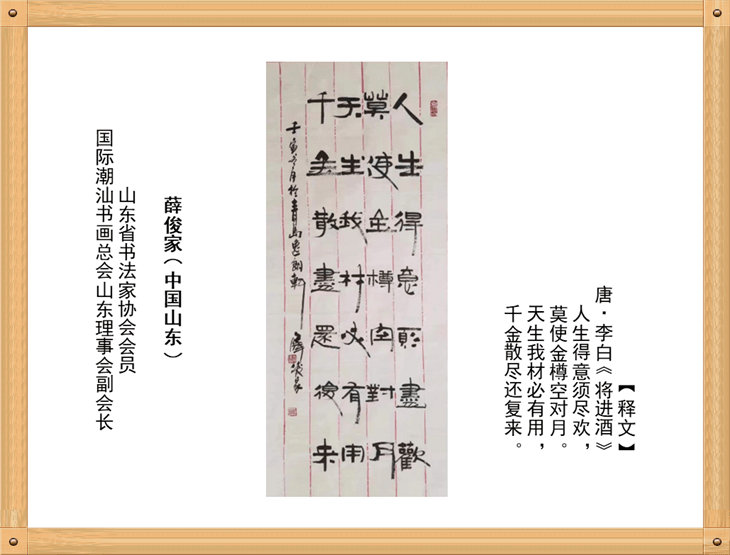 【释文】
唐·李白《将进酒》
人生得意须尽欢，
莫使金樽空对月。
天生我材必有用，
千金散尽还复来。
人生得意須盡歡
莫使金樽空對月
天生我材必有用
千金散盡還復来
壬寅月於青島軒
薛俊家
薛俊家（中国山东）
山东省书法家协会会员
国际潮汕书画总会山东理事会副会长